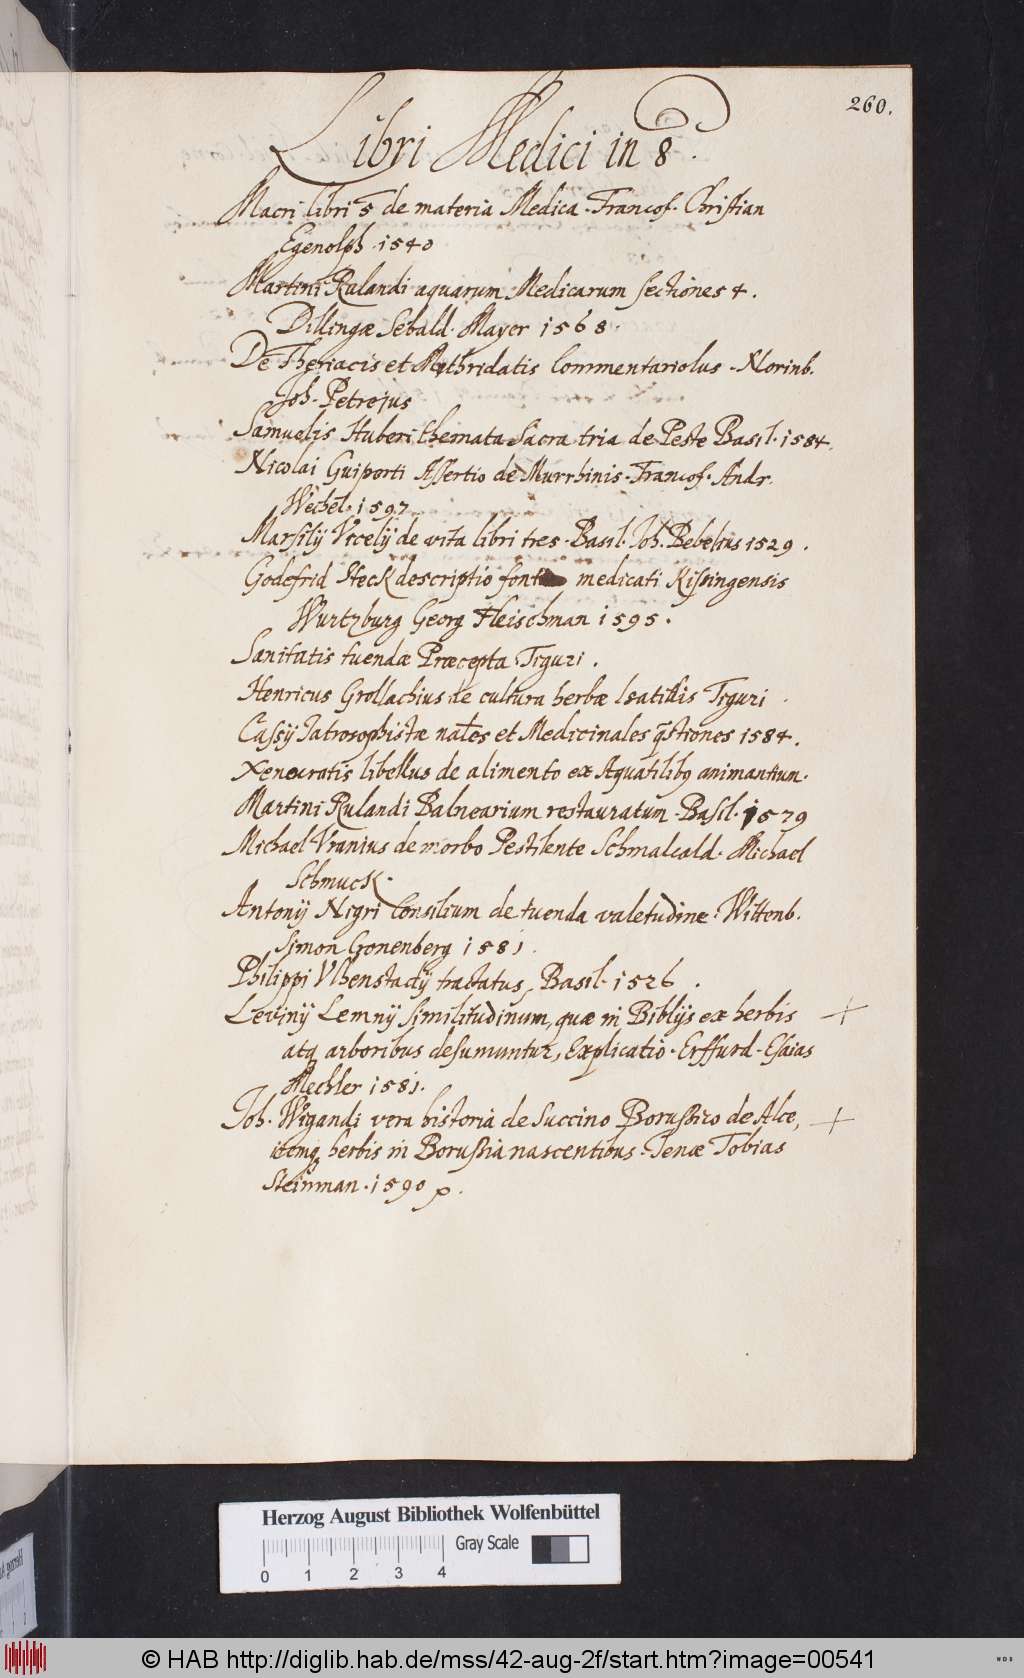 260.
Libri Medici in 8.
Macri libri 5 de materia Medica. Francof. Christian
Egenolph. 1540
Martini Rulandi aquarum Medicarum sectiones 4.
Dillingæ Sebald. Mayer 1568.
De Theriacis et Mithridatis Commentariolus. Norinb.
Joh. Petrejus
Samuelis Huberi themata Sacra tria de Peste Basil. 1584.
Nicolai Guiporti Assertio de Murrhinis. Francof. Andr.
Wechel. 1597
Marsilÿ Vicelÿ de vita libri tres. Basil. Joh. Bebelius 1529.
Godefrid Steck descriptio fontis medicati Kisingensis
Wurtzburg Georg Fleischman 1595.
Sanitatis tuendæ Præcepta. Tiguri.
Henricus Grollachius de cultura herbæ Isatidis Tiguri
Cassÿ Jatrosophistæ nāles et Medicinales q̄stiones 1584.
Xenocratis libellus de alimento ex Aquatilibꝫ animantium.
Martini Rulandi Balnearium restauratum. Basil. 1579
Michael Vranius de morbo Pestilente Schmalcald. Michael
Schmuck.
Antonÿ Nigri Consilium de tuenda valetudine. Wittenb.
Simon Gronenberg 1581.
Philippi Vlhenstadÿ tractatus, Basil. 1526.
Levinÿ Lemnÿ similitudinum, quæ in Biblÿs ex herbis +
atq arboribus desumuntur, Explicatio. Erffurd. Esaias
Mechler 1581.
Joh. Wigandi vera historia de Succino Borußico de Alce, +
itemq herbis in Borußia nascentibus. Jenæ Tobias
Steinman. 1590
Herzog August Bibliothek Wolfenbüttel
Gray Scale
0 1 2 3 4
© HAB http://diglib.hab.de/mss/42-aug-2f/start.htm?image=00541